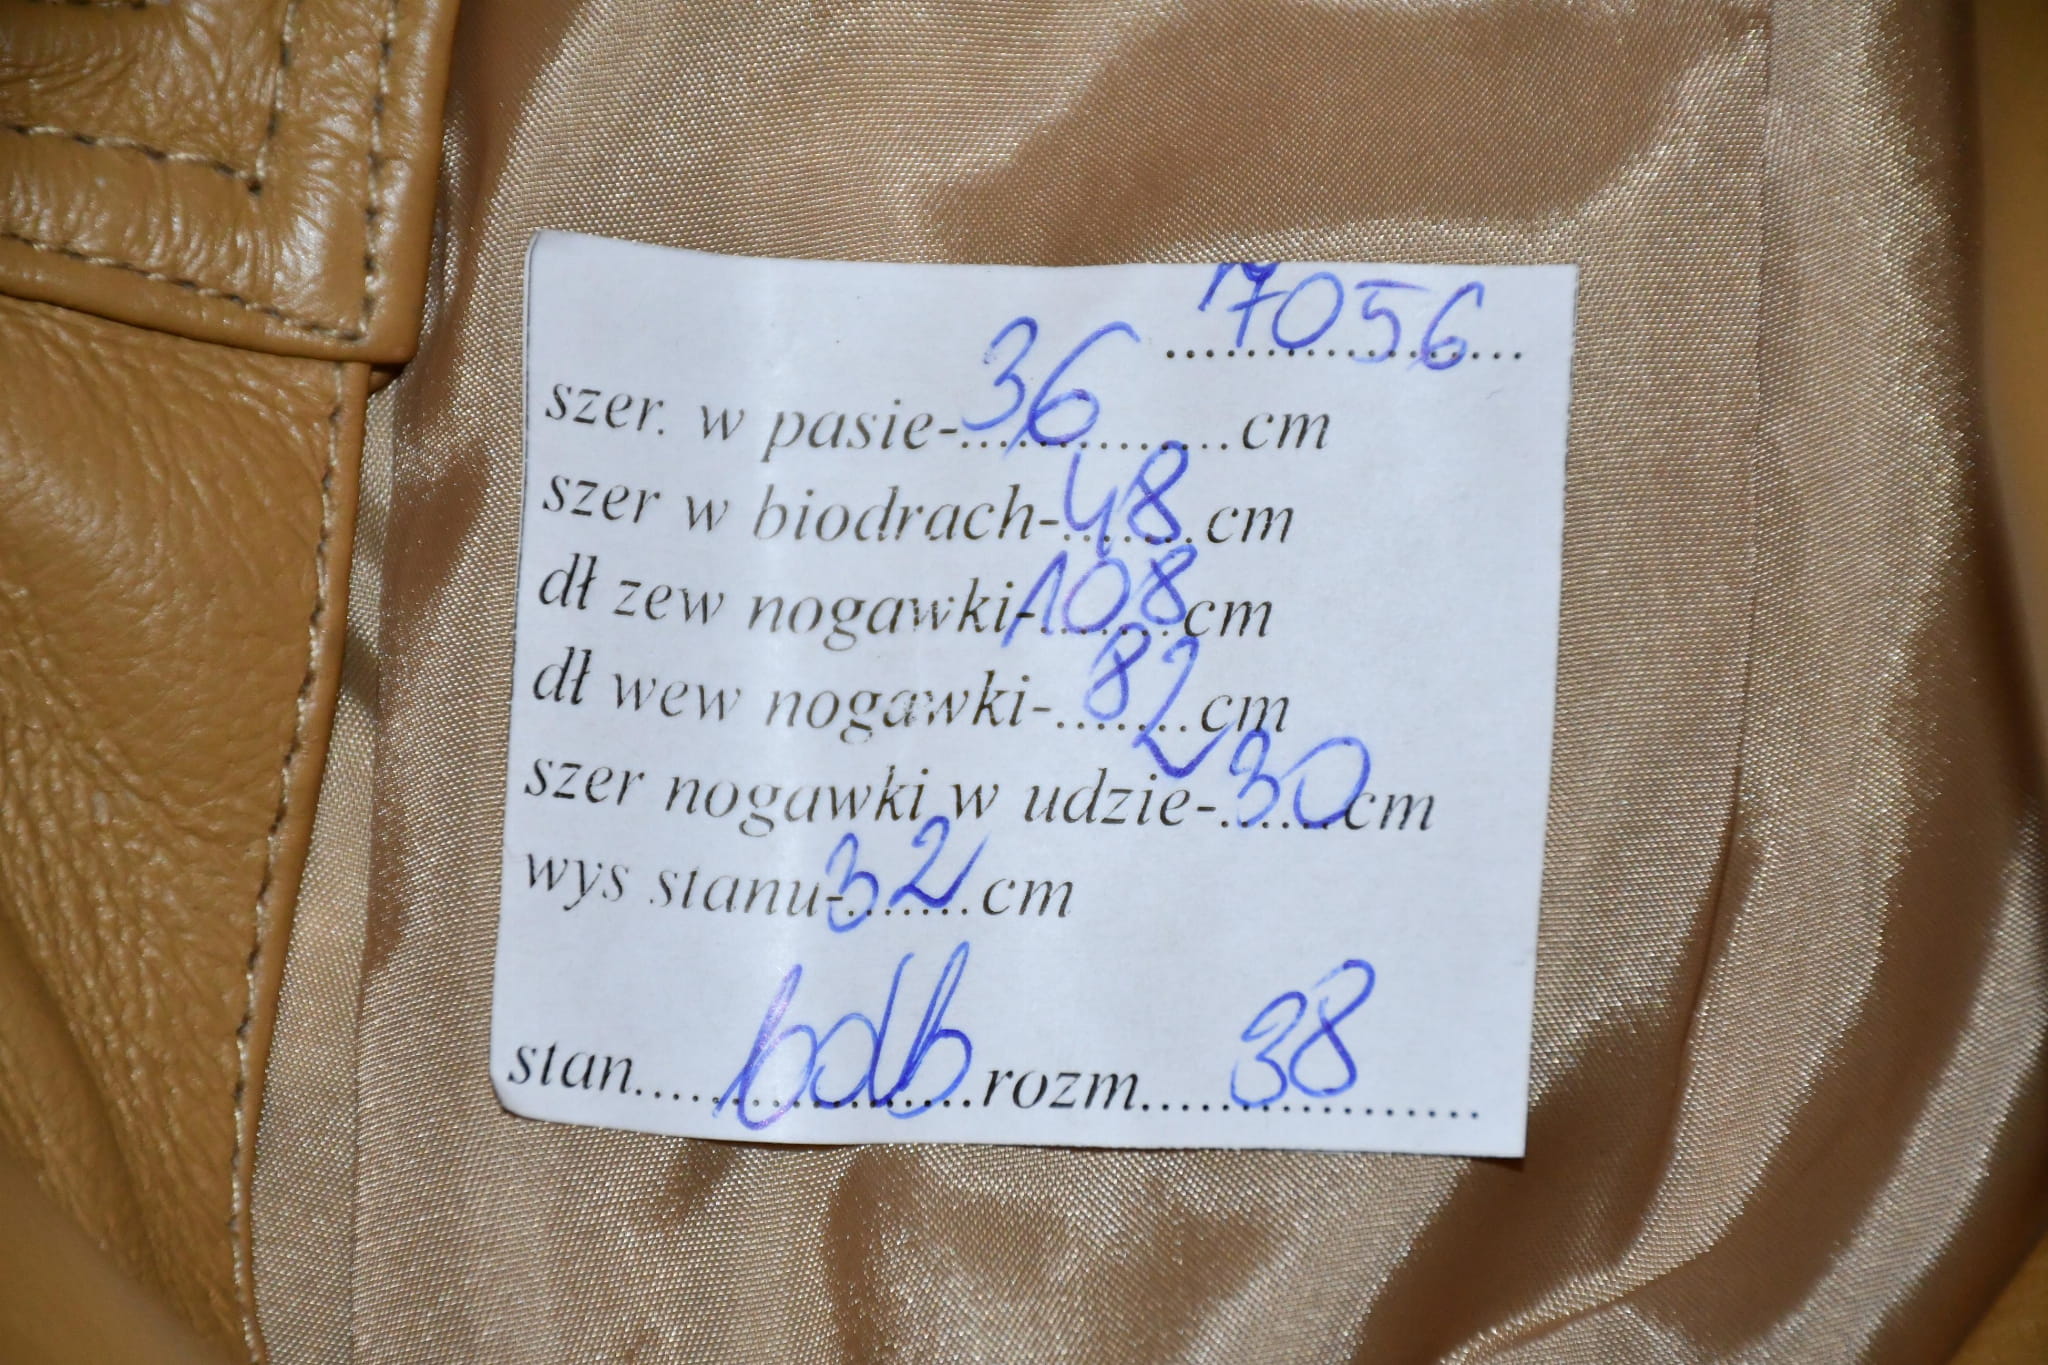 7056
szer. w pasie-36cm
szer w biodrach-48cm
dł zew nogawki-108cm
dł wew nogawki-82cm
szer nogawki w udzie-30cm
wys stanu-32cm
stan....bdb.rozm....38....